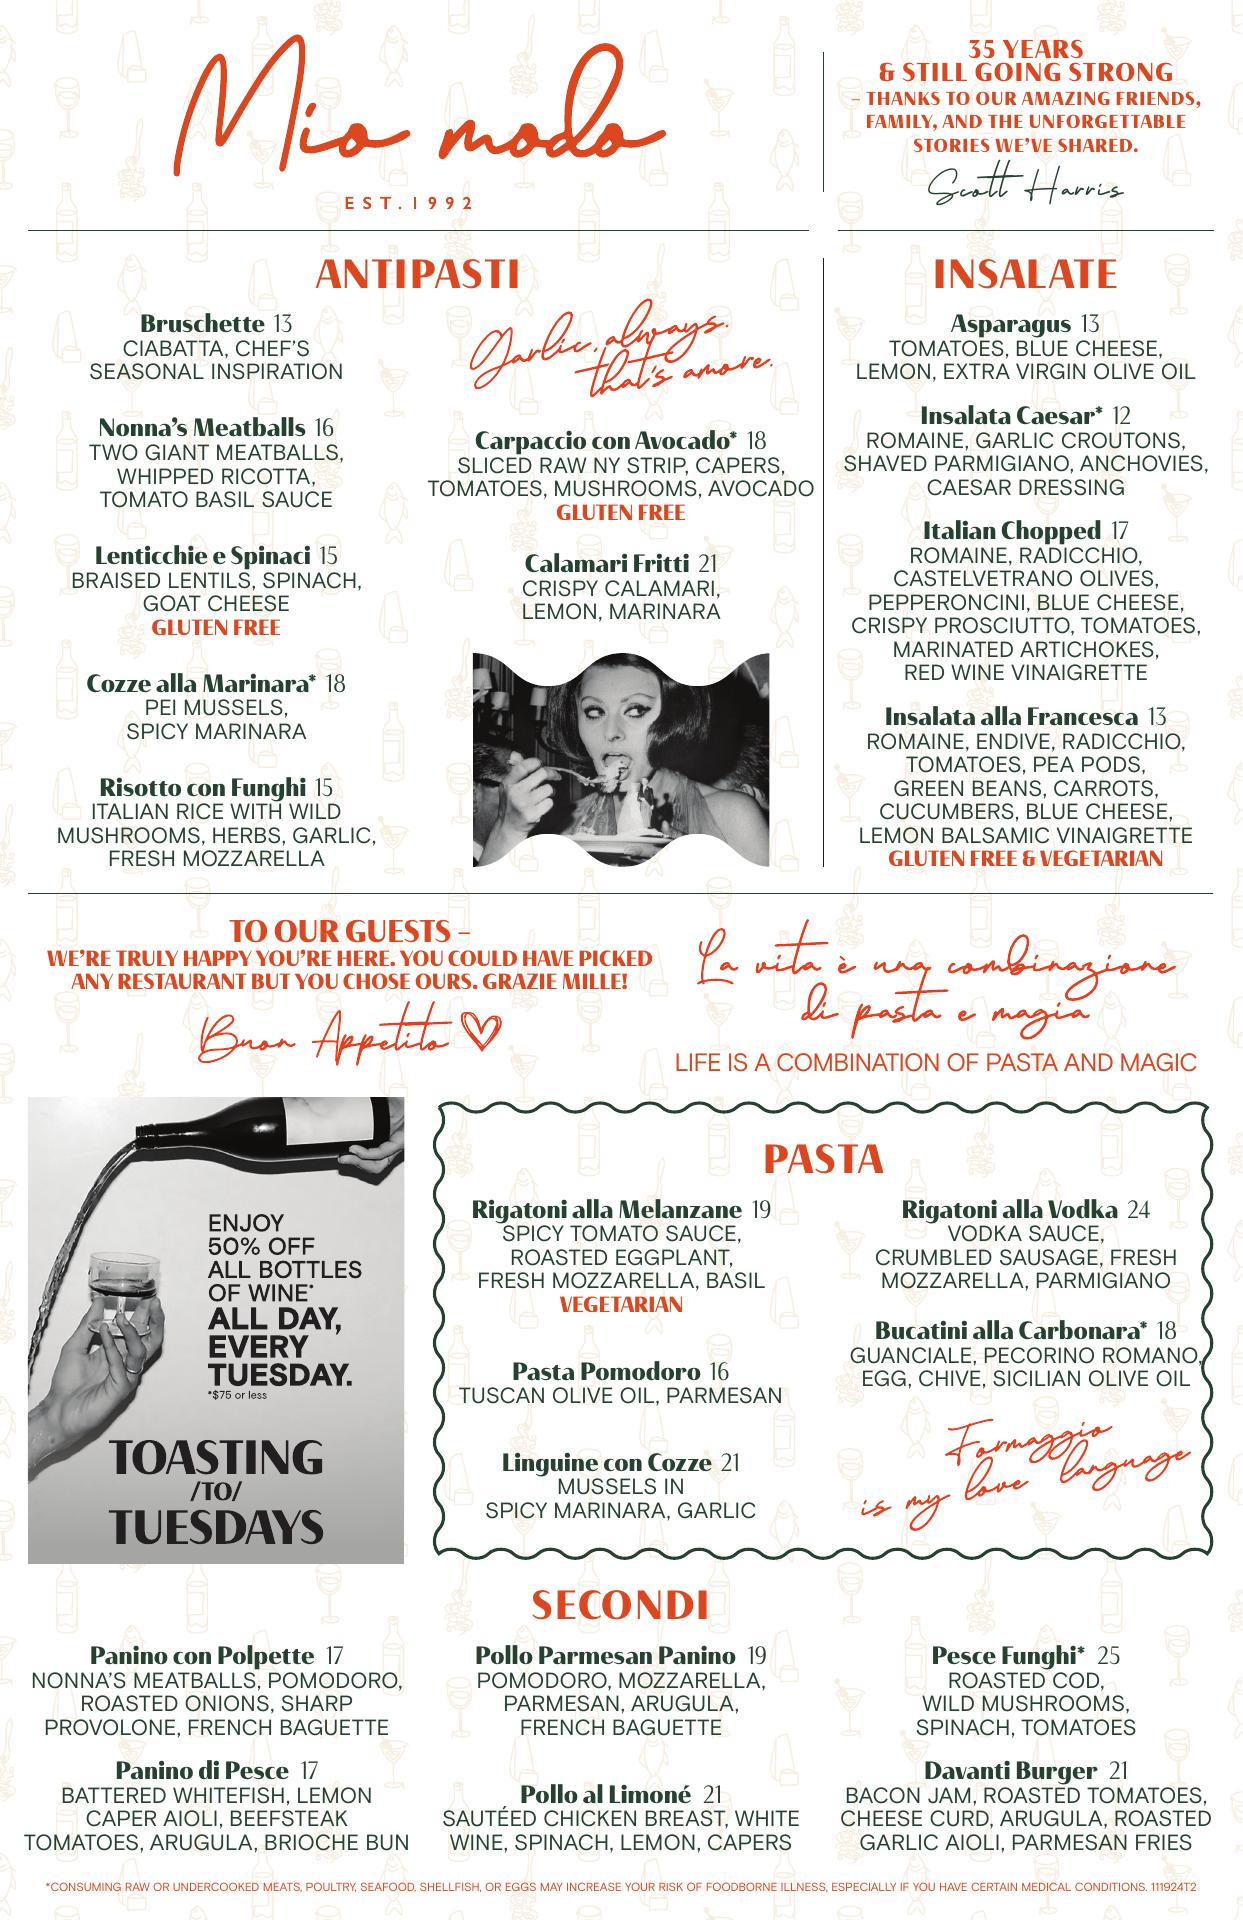 Mio modo
EST. 1992
35 YEARS
& STILL GOING STRONG
– THANKS TO OUR AMAZING FRIENDS,
FAMILY, AND THE UNFORGETTABLE
STORIES WE'VE SHARED.
Scott Harris
ANTIPASTI
Bruschette 13
CIABATTA, CHEF'S
SEASONAL INSPIRATION
Nonna's Meatballs 16
TWO GIANT MEATBALLS,
WHIPPED RICOTTA,
TOMATO BASIL SAUCE
Lenticchie e Spinaci 15
BRAISED LENTILS, SPINACH,
GOAT CHEESE
GLUTEN FREE
Cozze alla Marinara* 18
PEI MUSSELS,
SPICY MARINARA
Risotto con Funghi 15
ITALIAN RICE WITH WILD
MUSHROOMS, HERBS, GARLIC,
FRESH MOZZARELLA
Garlic, always.
that's amore.
Carpaccio con Avocado* 18
SLICED RAW NY STRIP, CAPERS,
TOMATOES, MUSHROOMS, AVOCADO
GLUTEN FREE
Calamari Fritti 21
CRISPY CALAMARI,
LEMON, MARINARA
INSALATE
Asparagus 13
TOMATOES, BLUE CHEESE,
LEMON, EXTRA VIRGIN OLIVE OIL
Insalata Caesar* 12
ROMAINE, GARLIC CROUTONS,
SHAVED PARMIGIANO, ANCHOVIES,
CAESAR DRESSING
Italian Chopped 17
ROMAINE, RADICCHIO,
CASTELVETRANO OLIVES,
PEPPERONCINI, BLUE CHEESE,
CRISPY PROSCIUTTO, TOMATOES,
MARINATED ARTICHOKES,
RED WINE VINAIGRETTE
Insalata alla Francesca 13
ROMAINE, ENDIVE, RADICCHIO,
TOMATOES, PEA PODS,
GREEN BEANS, CARROTS,
CUCUMBERS, BLUE CHEESE,
LEMON BALSAMIC VINAIGRETTE
GLUTEN FREE & VEGETARIAN
TO OUR GUESTS –
WE'RE TRULY HAPPY YOU'RE HERE. YOU COULD HAVE PICKED
ANY RESTAURANT BUT YOU CHOSE OURS. GRAZIE MILLE!
Buon Appetito
La vita è una combinazione
di pasta e magia
LIFE IS A COMBINATION OF PASTA AND MAGIC
ENJOY
50% OFF
ALL BOTTLES
OF WINE*
ALL DAY,
EVERY
TUESDAY.
*$75 or less
TOASTING
/TO/
TUESDAYS
PASTA
Rigatoni alla Melanzane 19
SPICY TOMATO SAUCE,
ROASTED EGGPLANT,
FRESH MOZZARELLA, BASIL
VEGETARIAN
Pasta Pomodoro 16
TUSCAN OLIVE OIL, PARMESAN
Linguine con Cozze 21
MUSSELS IN
SPICY MARINARA, GARLIC
Rigatoni alla Vodka 24
VODKA SAUCE,
CRUMBLED SAUSAGE, FRESH
MOZZARELLA, PARMIGIANO
Bucatini alla Carbonara* 18
GUANCIALE, PECORINO ROMANO,
EGG, CHIVE, SICILIAN OLIVE OIL
Formaggio
is my love language
SECONDI
Panino con Polpette 17
NONNA'S MEATBALLS, POMODORO,
ROASTED ONIONS, SHARP
PROVOLONE, FRENCH BAGUETTE
Panino di Pesce 17
BATTERED WHITEFISH, LEMON
CAPER AIOLI, BEEFSTEAK
TOMATOES, ARUGULA, BRIOCHE BUN
Pollo Parmesan Panino 19
POMODORO, MOZZARELLA,
PARMESAN, ARUGULA,
FRENCH BAGUETTE
Pollo al Limoné 21
SAUTÉED CHICKEN BREAST, WHITE
WINE, SPINACH, LEMON, CAPERS
Pesce Funghi* 25
ROASTED COD,
WILD MUSHROOMS,
SPINACH, TOMATOES
Davanti Burger 21
BACON JAM, ROASTED TOMATOES,
CHEESE CURD, ARUGULA, ROASTED
GARLIC AIOLI, PARMESAN FRIES
*CONSUMING RAW OR UNDERCOOKED MEATS, POULTRY, SEAFOOD, SHELLFISH, OR EGGS MAY INCREASE YOUR RISK OF FOODBORNE ILLNESS, ESPECIALLY IF YOU HAVE CERTAIN MEDICAL CONDITIONS. 111924T2